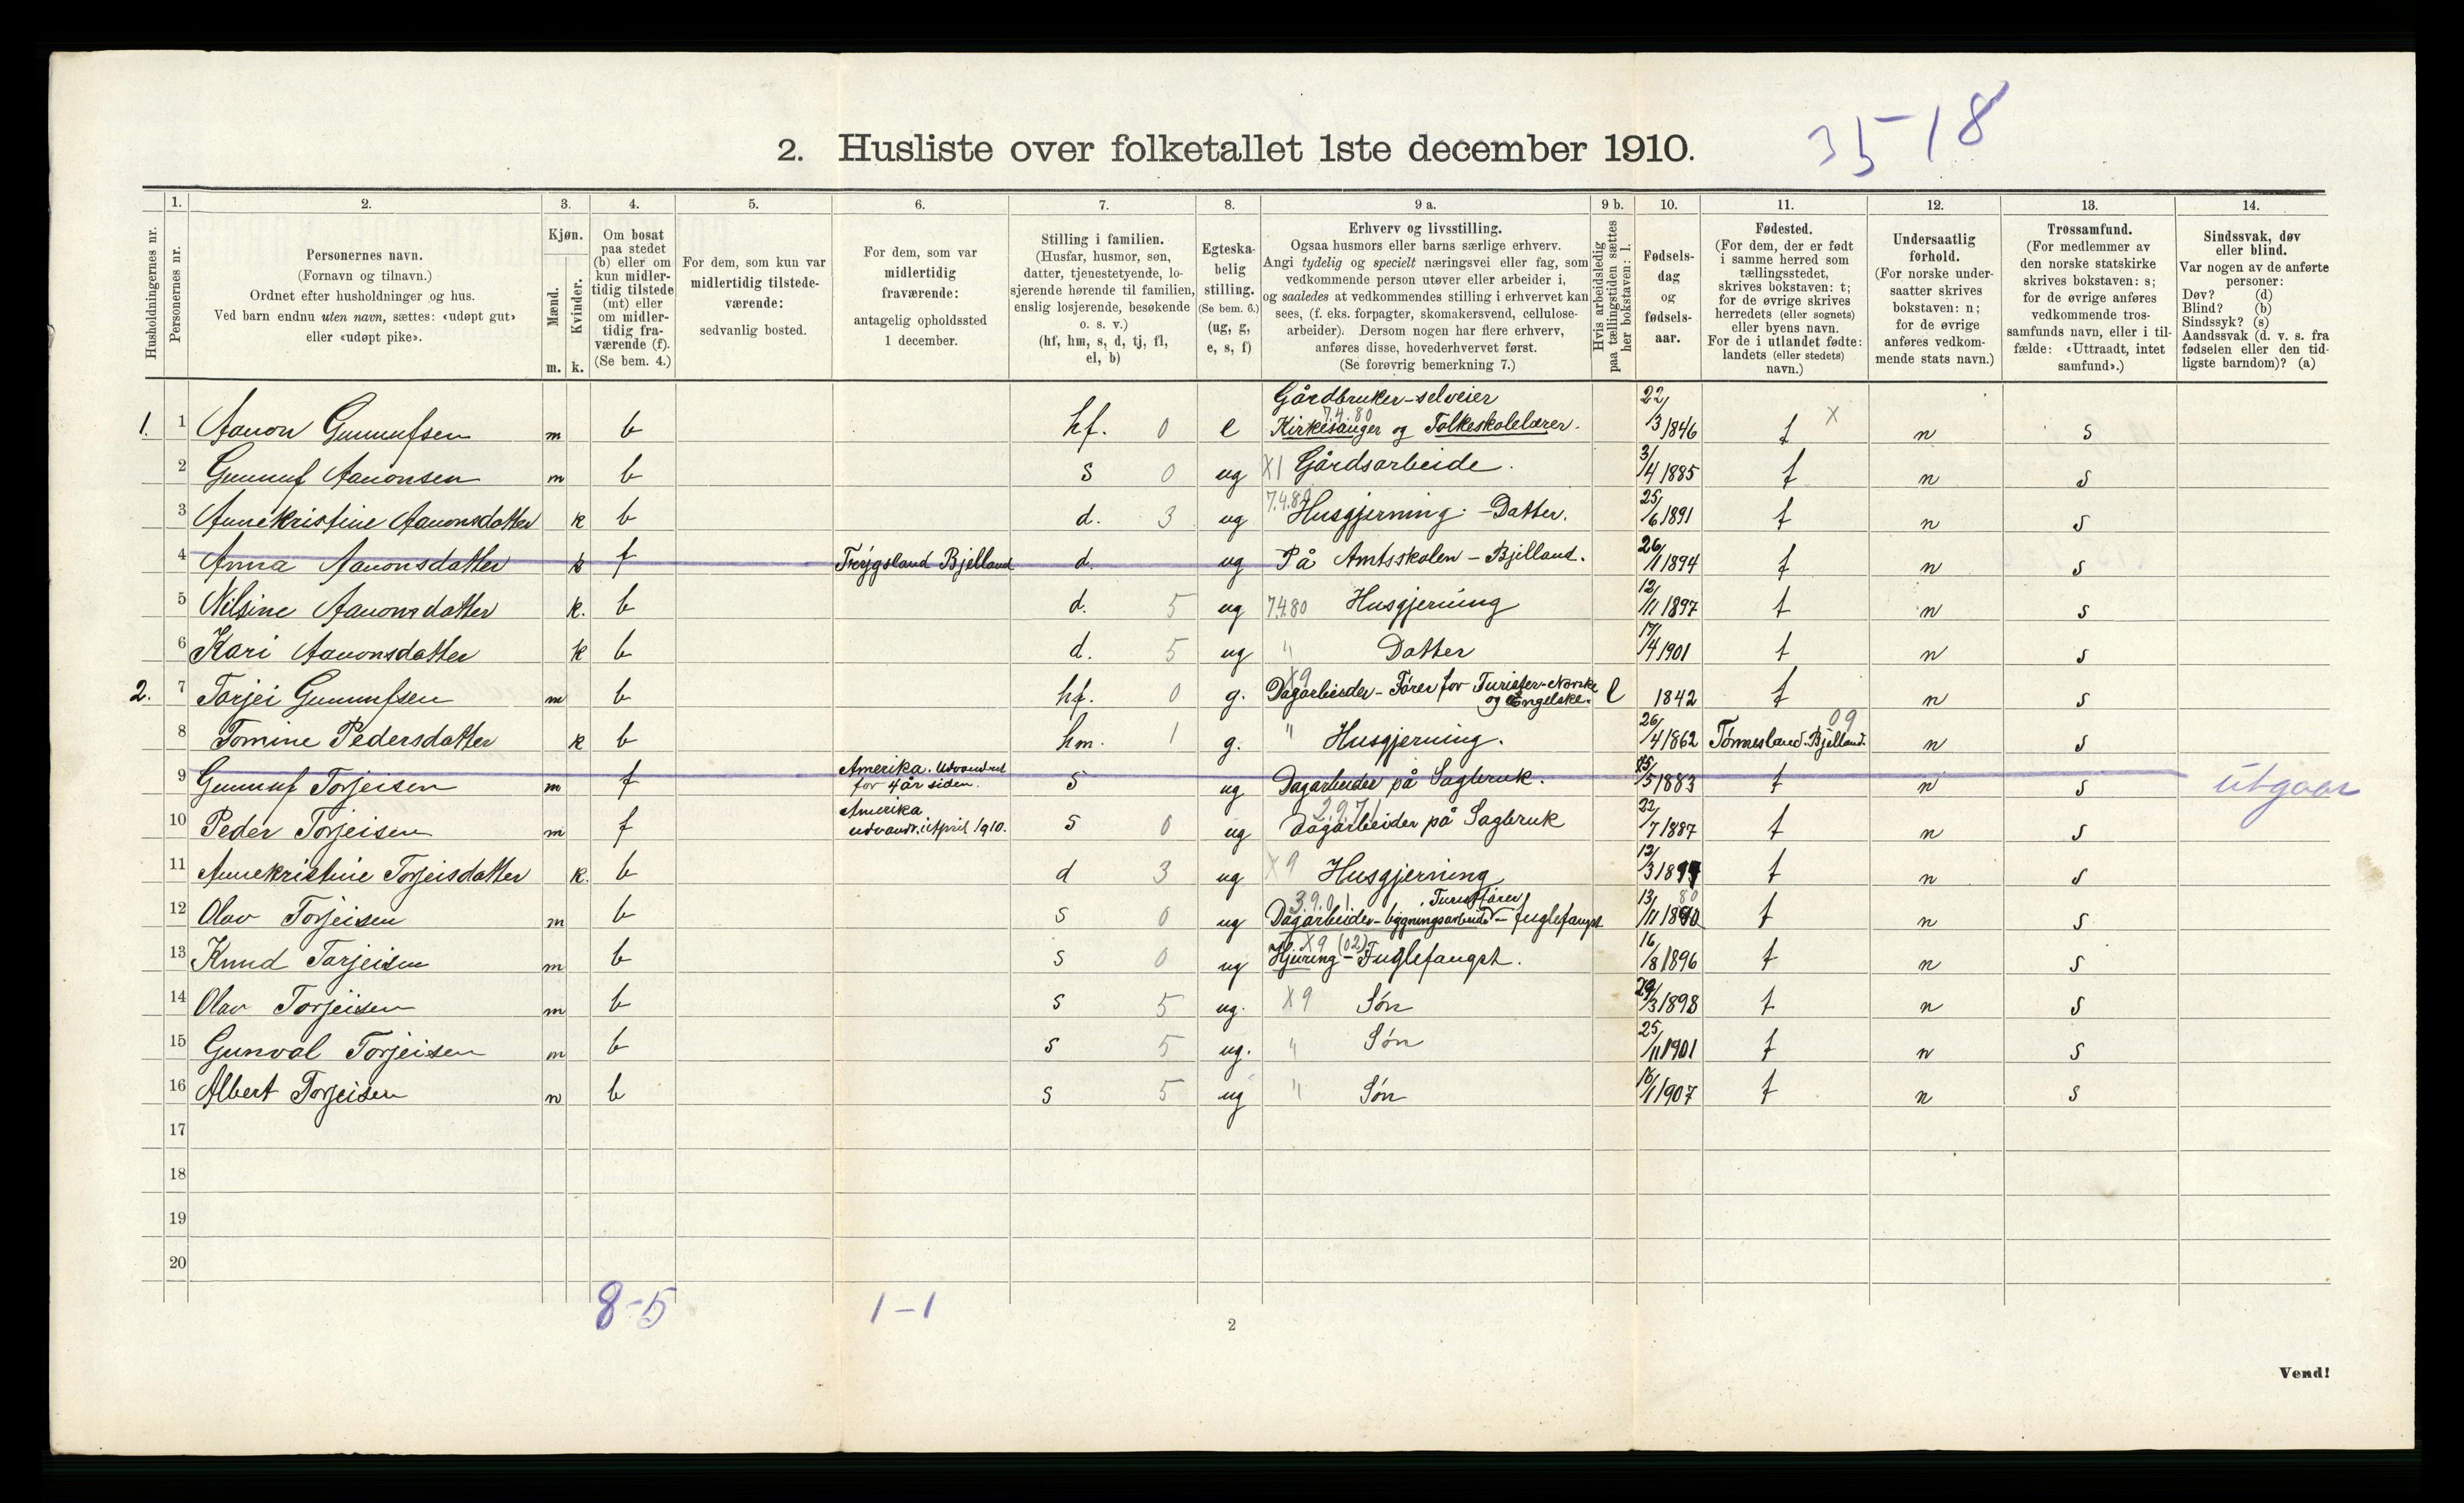 35-18
2. Husliste over folketallet 1ste december 1910.
Husholdningernes nr.
1.
Personernes nr.
2.
Personernes navn.
(Fornavn og tilnavn.)
Ordnet efter husholdninger og hus.
Ved barn endnu uten navn, sættes: «udøpt gut»
eller «udøpt pike».
3.
Kjøn.
Mænd.
Kvinder.
m. k.
4.
Om bosat
paa stedet
(b) eller om
kun midler-
tidig tilstede
(mt) eller
om midler-
tidig fra-
værende (f).
(Se bem. 4.)
5.
For dem, som kun var
midlertidig tilstede-
værende:
sedvanlig bosted.
6.
For dem, som var
midlertidig
fraværende:
antagelig opholdssted
1 december.
7.
Stilling i familien.
(Husfar, husmor, søn,
datter, tjenestetyende, lo-
sjerende hørende til familien,
enslig losjerende, besøkende
o. s. v.)
(hf, hm, s, d, tj, fl,
el, b)
8.
Egteska-
belig
stilling.
(Se bem. 6.)
(ug, g,
e, s, f)
9 a.
Erhverv og livsstilling.
Ogsaa husmors eller barns særlige erhverv.
Angi tydelig og specielt næringsvei eller fag, som
vedkommende person utøver eller arbeider i,
og saaledes at vedkommendes stilling i erhvervet kan
sees, (f. eks. forpagter, skomakersvend, cellulose-
arbeider). Dersom nogen har flere erhverv,
anføres disse, hovederhvervet først.
(Se forøvrig bemerkning 7.)
9 b.
Hvis arbeidsledig
paa tællingstiden sættes
her bokstaven: l.
10.
Fødsels-
dag
og
fødsels-
aar.
11.
Fødested.
(For dem, der er født
i samme herred som
tællingsstedet,
skrives bokstaven: t;
for de øvrige skrives
herredets (eller sognets)
eller byens navn.
For de i utlandet fødte:
landets (eller stedets)
navn.)
12.
Undersaatlig
forhold.
(For norske under-
saatter skrives
bokstaven: n;
for de øvrige
anføres vedkom-
mende stats navn.)
13.
Trossamfund.
(For medlemmer av
den norske statskirke
skrives bokstaven: s;
for de øvrige anføres
vedkommende tros-
samfunds navn, eller i til-
fælde: «Uttraadt, intet
samfund».)
14.
Sindssvak, døv
eller blind.
Var nogen av de anførte
personer:
Døv? (d)
Blind? (b)
Sindssyk? (s)
Aandssvak (d. v. s. fra
fødselen eller den tid-
ligste barndom)? (a)
Gårdbruker-selveier
1. 1 Aanon Gunnufsen m b hf. 0 e 7.4.80 Kirkesanger og Folkeskolelærer. 22/3 1846 t X n s
2 Gunnuf Aanonsen m b s 0 ug X1 Gårdsarbeide. 3/4 1885 t n s
3 Annekristine Aanonsdatter k b d. 3 ug 7.4.80 Husgjerning - Datter. 25/6 1891 t n s
4 Anna Aanonsdatter k f Trygsland Bjelland d. ug På Amtsskolen - Bjelland. 26/11 1894 t n s
5 Nilsine Aanonsdatter k. b d. 5 ug 7.4.80 Husgjerning 12/11 1897 t n s
6 Kari Aanonsdatter k b d. 5 ug " Datter 17/4 1901 t n s
2. 7 Tarjei Gunnufsen m b hf. 0 g. X9 Dagarbeider - Fører for Turister - Norske og Engelske. l 1842 t n s
8 Tomine Pedersdatter k b hm. 1 g. " Husgjerning. 26/4 1862 Tønnesland. Bjelland. 09 n s
9 Gunnuf Torjeisen m f Amerika. Udvandret for 4 år siden. s ug Dagarbeider på Sagbruk. 15/5 1883 t n s utgaar
10 Peder Torjeisen m f Amerika udvandr. i April 1910. s 0 ug 2.9.71 Dagarbeider på Sagbruk 22/7 1887 t n s
11 Annekristine Torjeisdatter k. b d 3 ug X9 Husgjerning 12/3 1894 t n s
12 Olav Torjeisen m b s 0 ug 3.9.01. Turistfører Dagarbeider - bygningsarbeid - fuglefangst 13/11 1880 80 t n s
13 Knud Tarjeisen m b s 0 ug X9 (02) Hjuring - Fuglefangst. 16/8 1896 t n s
14 Olav Torjeisen m b s 5 ug. X9 Søn 29/3 1898 t n s
15 Gunval Torjeisen m b s 5 ug. " Søn 25/11 1901 t n s
16 Albert Torjeisen m b s 5 ug " Søn 16/1 1907 t n s
17
18
19
20
8-5 1-1
2
Vend!